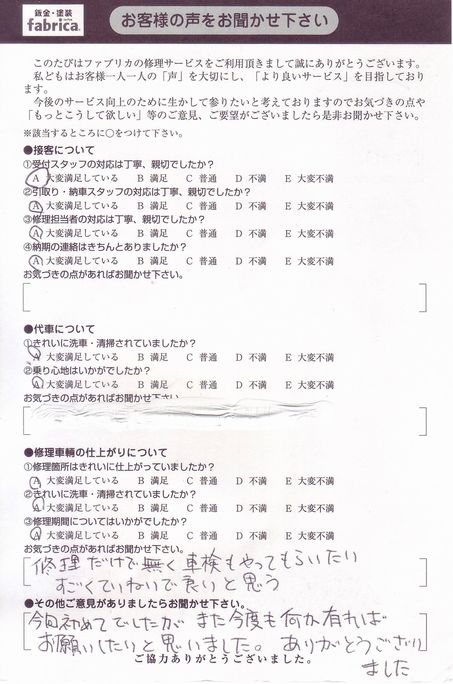 鈑金・塗装
fabrica.
お客様の声をお聞かせ下さい
このたびはファブリカの修理サービスをご利用頂きまして誠にありがとうございます。
私どもはお客様一人一人の「声」を大切にし、「より良いサービス」を目指しております。
今後のサービス向上のために生かして参りたいと考えておりますのでお気づきの点や
「もっとこうして欲しい」等のご意見、ご要望がございましたら是非お聞かせ下さい。
※該当するところに○をつけて下さい。
●接客について
①受付スタッフの対応は丁寧、親切でしたか?
A 大変満足している B 満足 C 普通 D 不満 E 大変不満
②引取り・納車スタッフの対応は丁寧、親切でしたか?
A 大変満足している B 満足 C 普通 D 不満 E 大変不満
③修理担当者の対応は丁寧、親切でしたか?
A 大変満足している B 満足 C 普通 D 不満 E 大変不満
④納期の連絡はきちんとありましたか?
A 大変満足している B 満足 C 普通 D 不満 E 大変不満
お気づきの点があればお聞かせ下さい。
●代車について
①きれいに洗車・清掃されていましたか?
A 大変満足している B 満足 C 普通 D 不満 E 大変不満
②乗り心地はいかがでしたか?
A 大変満足している B 満足 C 普通 D 不満 E 大変不満
お気づきの点があればお聞かせ下さい。
●修理車輌の仕上がりについて
①修理箇所はきれいに仕上がっていましたか?
A 大変満足している B 満足 C 普通 D 不満 E 大変不満
②きれいに洗車・清掃されていましたか?
A 大変満足している B 満足 C 普通 D 不満 E 大変不満
③修理期間についてはいかがでしたか?
A 大変満足している B 満足 C 普通 D 不満 E 大変不満
お気づきの点があればお聞かせ下さい。
修理だけで無く車検もやってもらいたい
すごくていねいで良いと思う
●その他ご意見がありましたらお聞かせ下さい。
今回初めてでしたが また今度も何か有れば
お願いしたいと思いました。 ありがとうござり
ました
ご協力ありがとうございました。